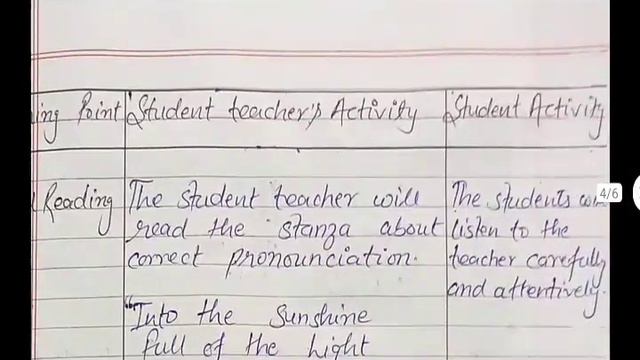 ing Point Student teacher's Activity Student Activity
Reading The student teacher will The students
read the stanza about listen to the
correct pronounciation. teacher carefully
and attentively.
"Into the Sunshine
full of the Light
4/6